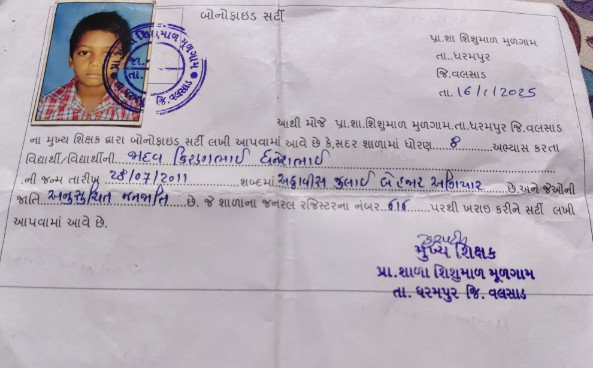 બોનોફાઇડ સર્ટી
પ્રા.શા શિશુમાળ મુળગામ
તા.ધરમપુર
જિ.વલસાડ
તા. 16/1/2025
આથી મોજે પ્રા.શા.શિશુમાળ મુળગામ.તા.ધરમપુર જિ.વલસાડ
ના મુખ્ય શિક્ષક દ્વારા બોનોફાઇડ સર્ટી લખી આપવામાં આવે છે કે,સદર શાળામાં ધોરણ 8 અભ્યાસ કરતા
વિદ્યાર્થી/વિદ્યાર્થીની જાદવ
ની જન્મ તારીખ 28/07/2011 શબ્દમાં અઠ્ઠાવીસ જુલાઈ બે હજાર અગિયાર છે.અને જેઓની
જાતિ અનુસુચિત જનજાતિ છે. જે શાળાના જનરલ રજિસ્ટરના નંબર પરથી ખરાઇ કરીને સર્ટી લખી
આપવામાં આવે છે.
મુખ્ય શિક્ષક
પ્રા.શાળા શિશુમાળ મૂળગામ
તા. ધરમપુર જિ. વલસાડ